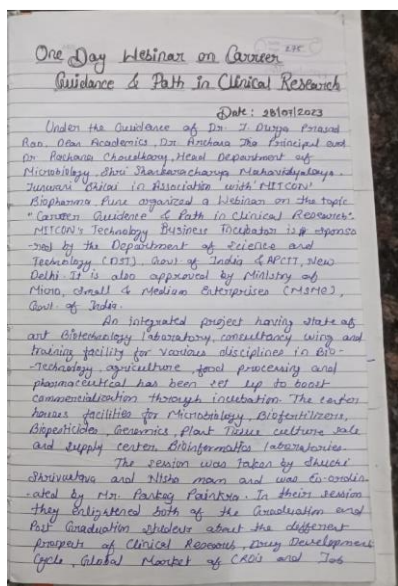 275
One Day Webinar on Carreer
Guidance & Path in Clinical Research
Date: 28/07/2023
Under the Guidance of Dr. J. Durga Prasad
Rao, Dean Academics, Dr. Archana Jha Principal and
Dr Rachana Choudhary, Head Department of
Microbiology, Shri Shankaracharya Mahavidyalaya,
Junwani Bhilai in Association with 'MITCON'
Biopharma Pune organized a Webinar on the topic
"Carreer Guidence & Path in Clinical Research".
MITCON's Technology Business Incubator is sponso
-red by the Department of Science and
Technology (DST), Govt of India & APCTT, New
Delhi. It is also approved by Ministry of
Micro, Small & Medium Enterprises (MSME),
Govt. of India.
An integrated project having state of
art Biotechnology laboratory, consultancy wing and
training facility for various disciplines in Bio-
-technology, agriculture, food processing and
pharmaceutical has been set up to boost
commercialization through incubation. The center
houses facilities for Microbiology, Biofertilizers,
Biopesticides, Genomics, Plant Tissue culture sale
and supply center, Bioinformatics laboratories.
The session was taken by Shuchi
Shrivastava and Nisha mam and was co-ordin
-ated by Mr. Pankaj Painkra. In their session
they enlightened both of the Graduation and
Post Graduation students about the different
prospects of Clinical Research, Drug Development
Cycle, Global Market of CRO's and Job